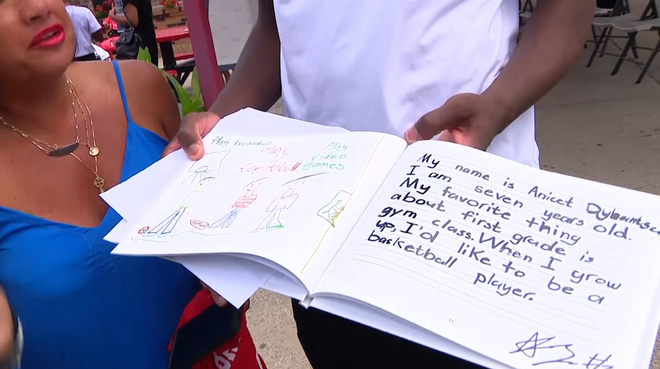 Play Basketball
Play
football
Play
video
Games
My name is Anicet
I am seven years old.
My favorite thing
about first grade is
gym class. When I grow
up, I'd like to be a
basketball player.